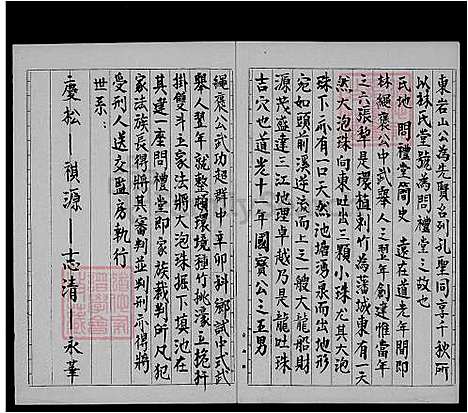 東岩山公為先賢召列孔聖同享千秋所
以林氏堂號為問禮堂之故也
氏地 問禮堂簡史 遠在道光年間即
林繩褒公中武舉人三翌年創建惟當年
三六張犂是環植刺竹為藩城東有一天
然大泡珠向東吐出三顆小珠尤其大泡
珠下亦有一口天然池塘湯泉而生形
宛如龍目前溪逆流而上之一大龍船財
源茂盛達三江地理卓越乃是龍吐珠
吉穴也道光十一年國寶公之五男
繩褒公武功超群中辛卯科鄉試中式武
舉人翌年就整頓環境種竹挑濠立桅杆
掛雙斗立家法將大泡珠掘下填池在
其建一座問禮堂即家族裁判所凡犯
家法族長得將其審判並判刑亦得將
受刑人送交監房執行
世系：
慶松—祺源 志清—永華